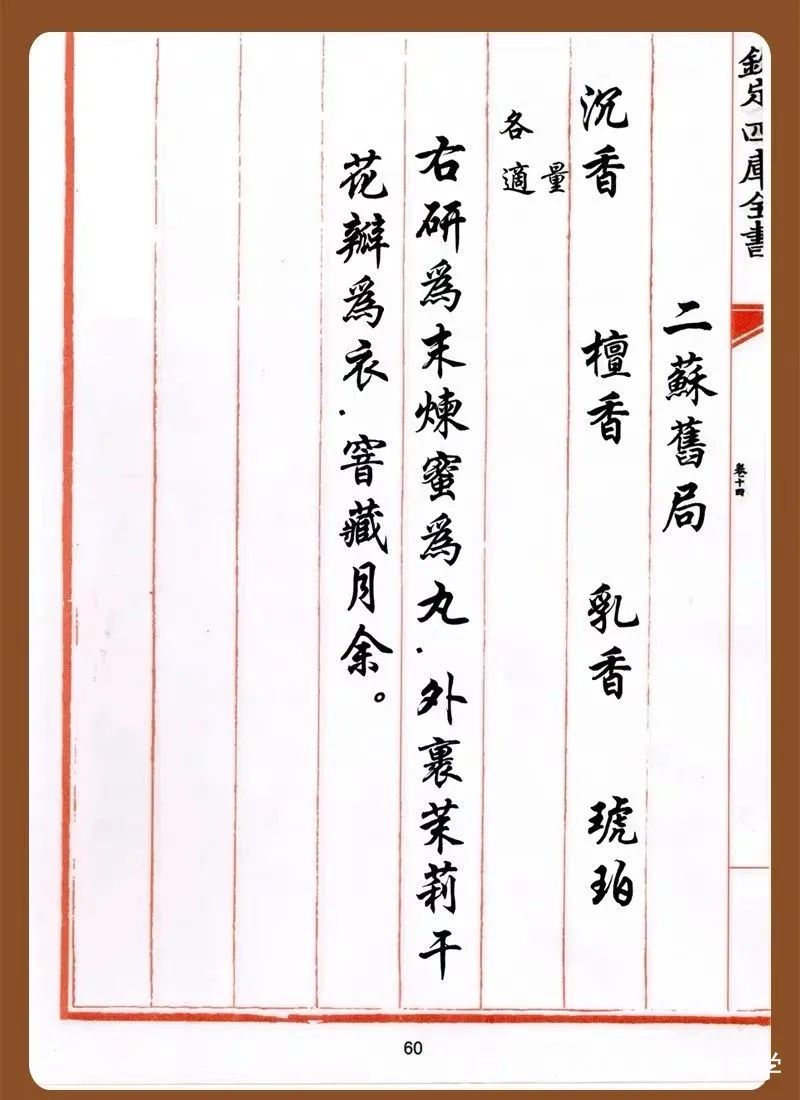 欽定四庫全書
卷十四
二蘇舊局
沉香 檀香 乳香 琥珀
各適量
右研爲末煉蜜爲丸．外裹茉莉干
花瓣爲衣．窨藏月余。
60
学